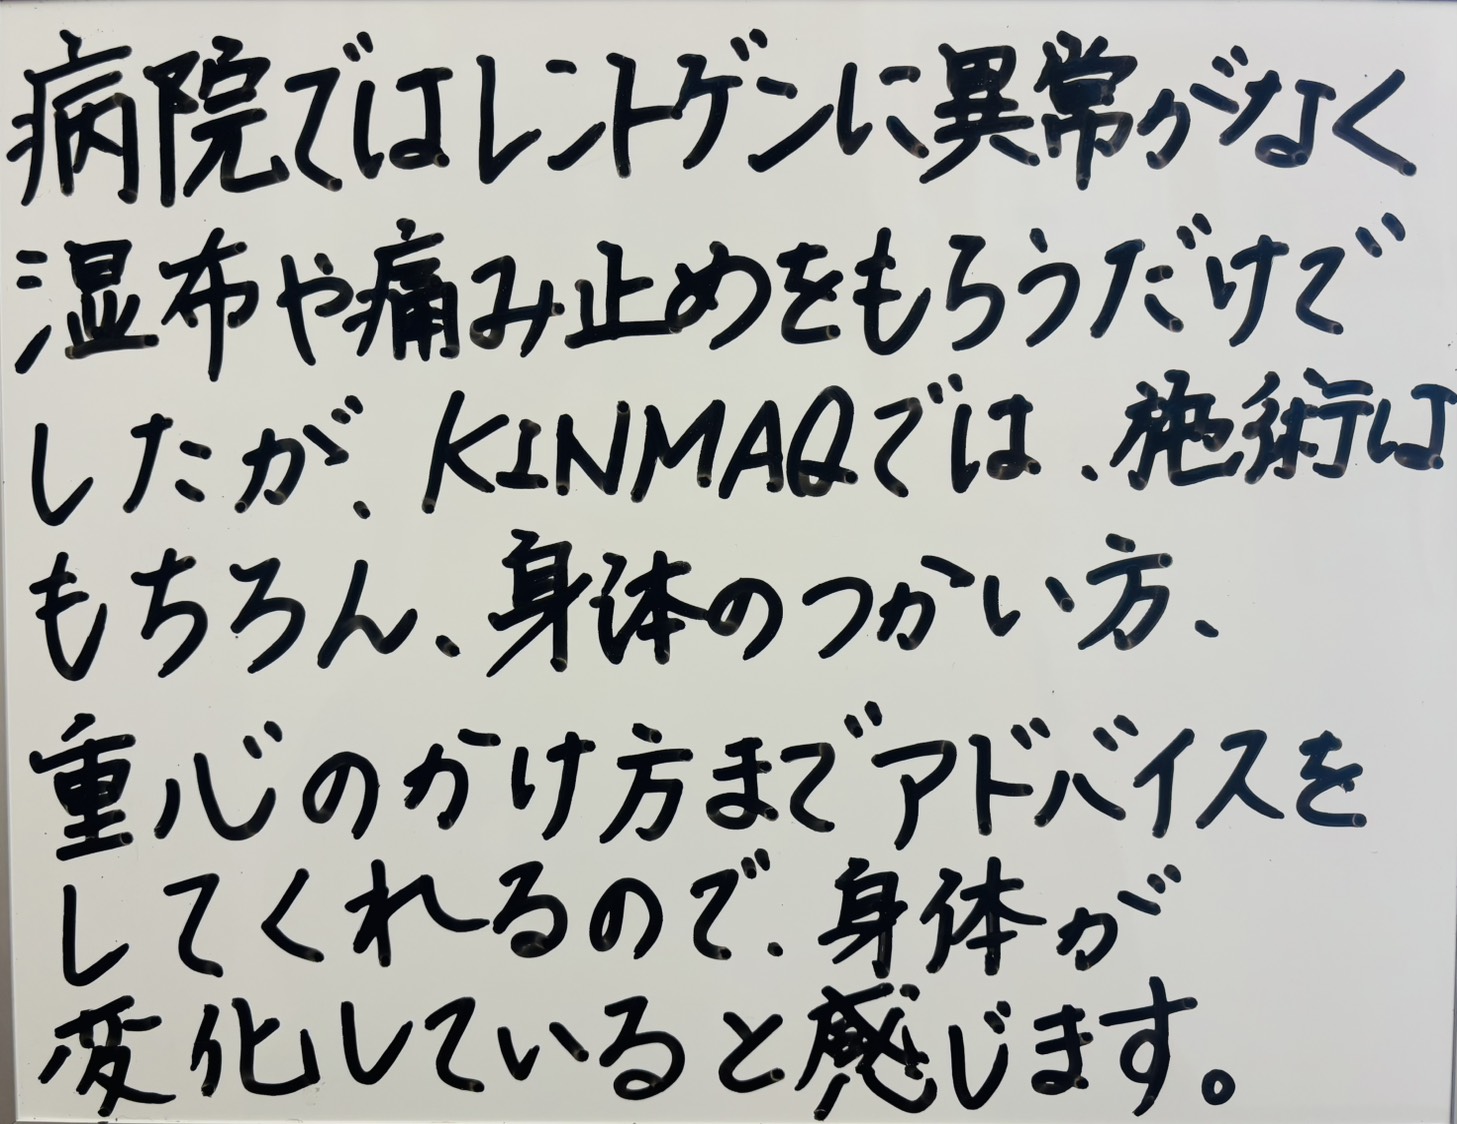 病院ではレントゲンに異常がなく
湿布や痛み止めをもらうだけで
したが、KINMAQでは、施術は
もちろん、身体のつかい方、
重心のかけ方までアドバイスを
してくれるので、身体が
変化していると感じます。